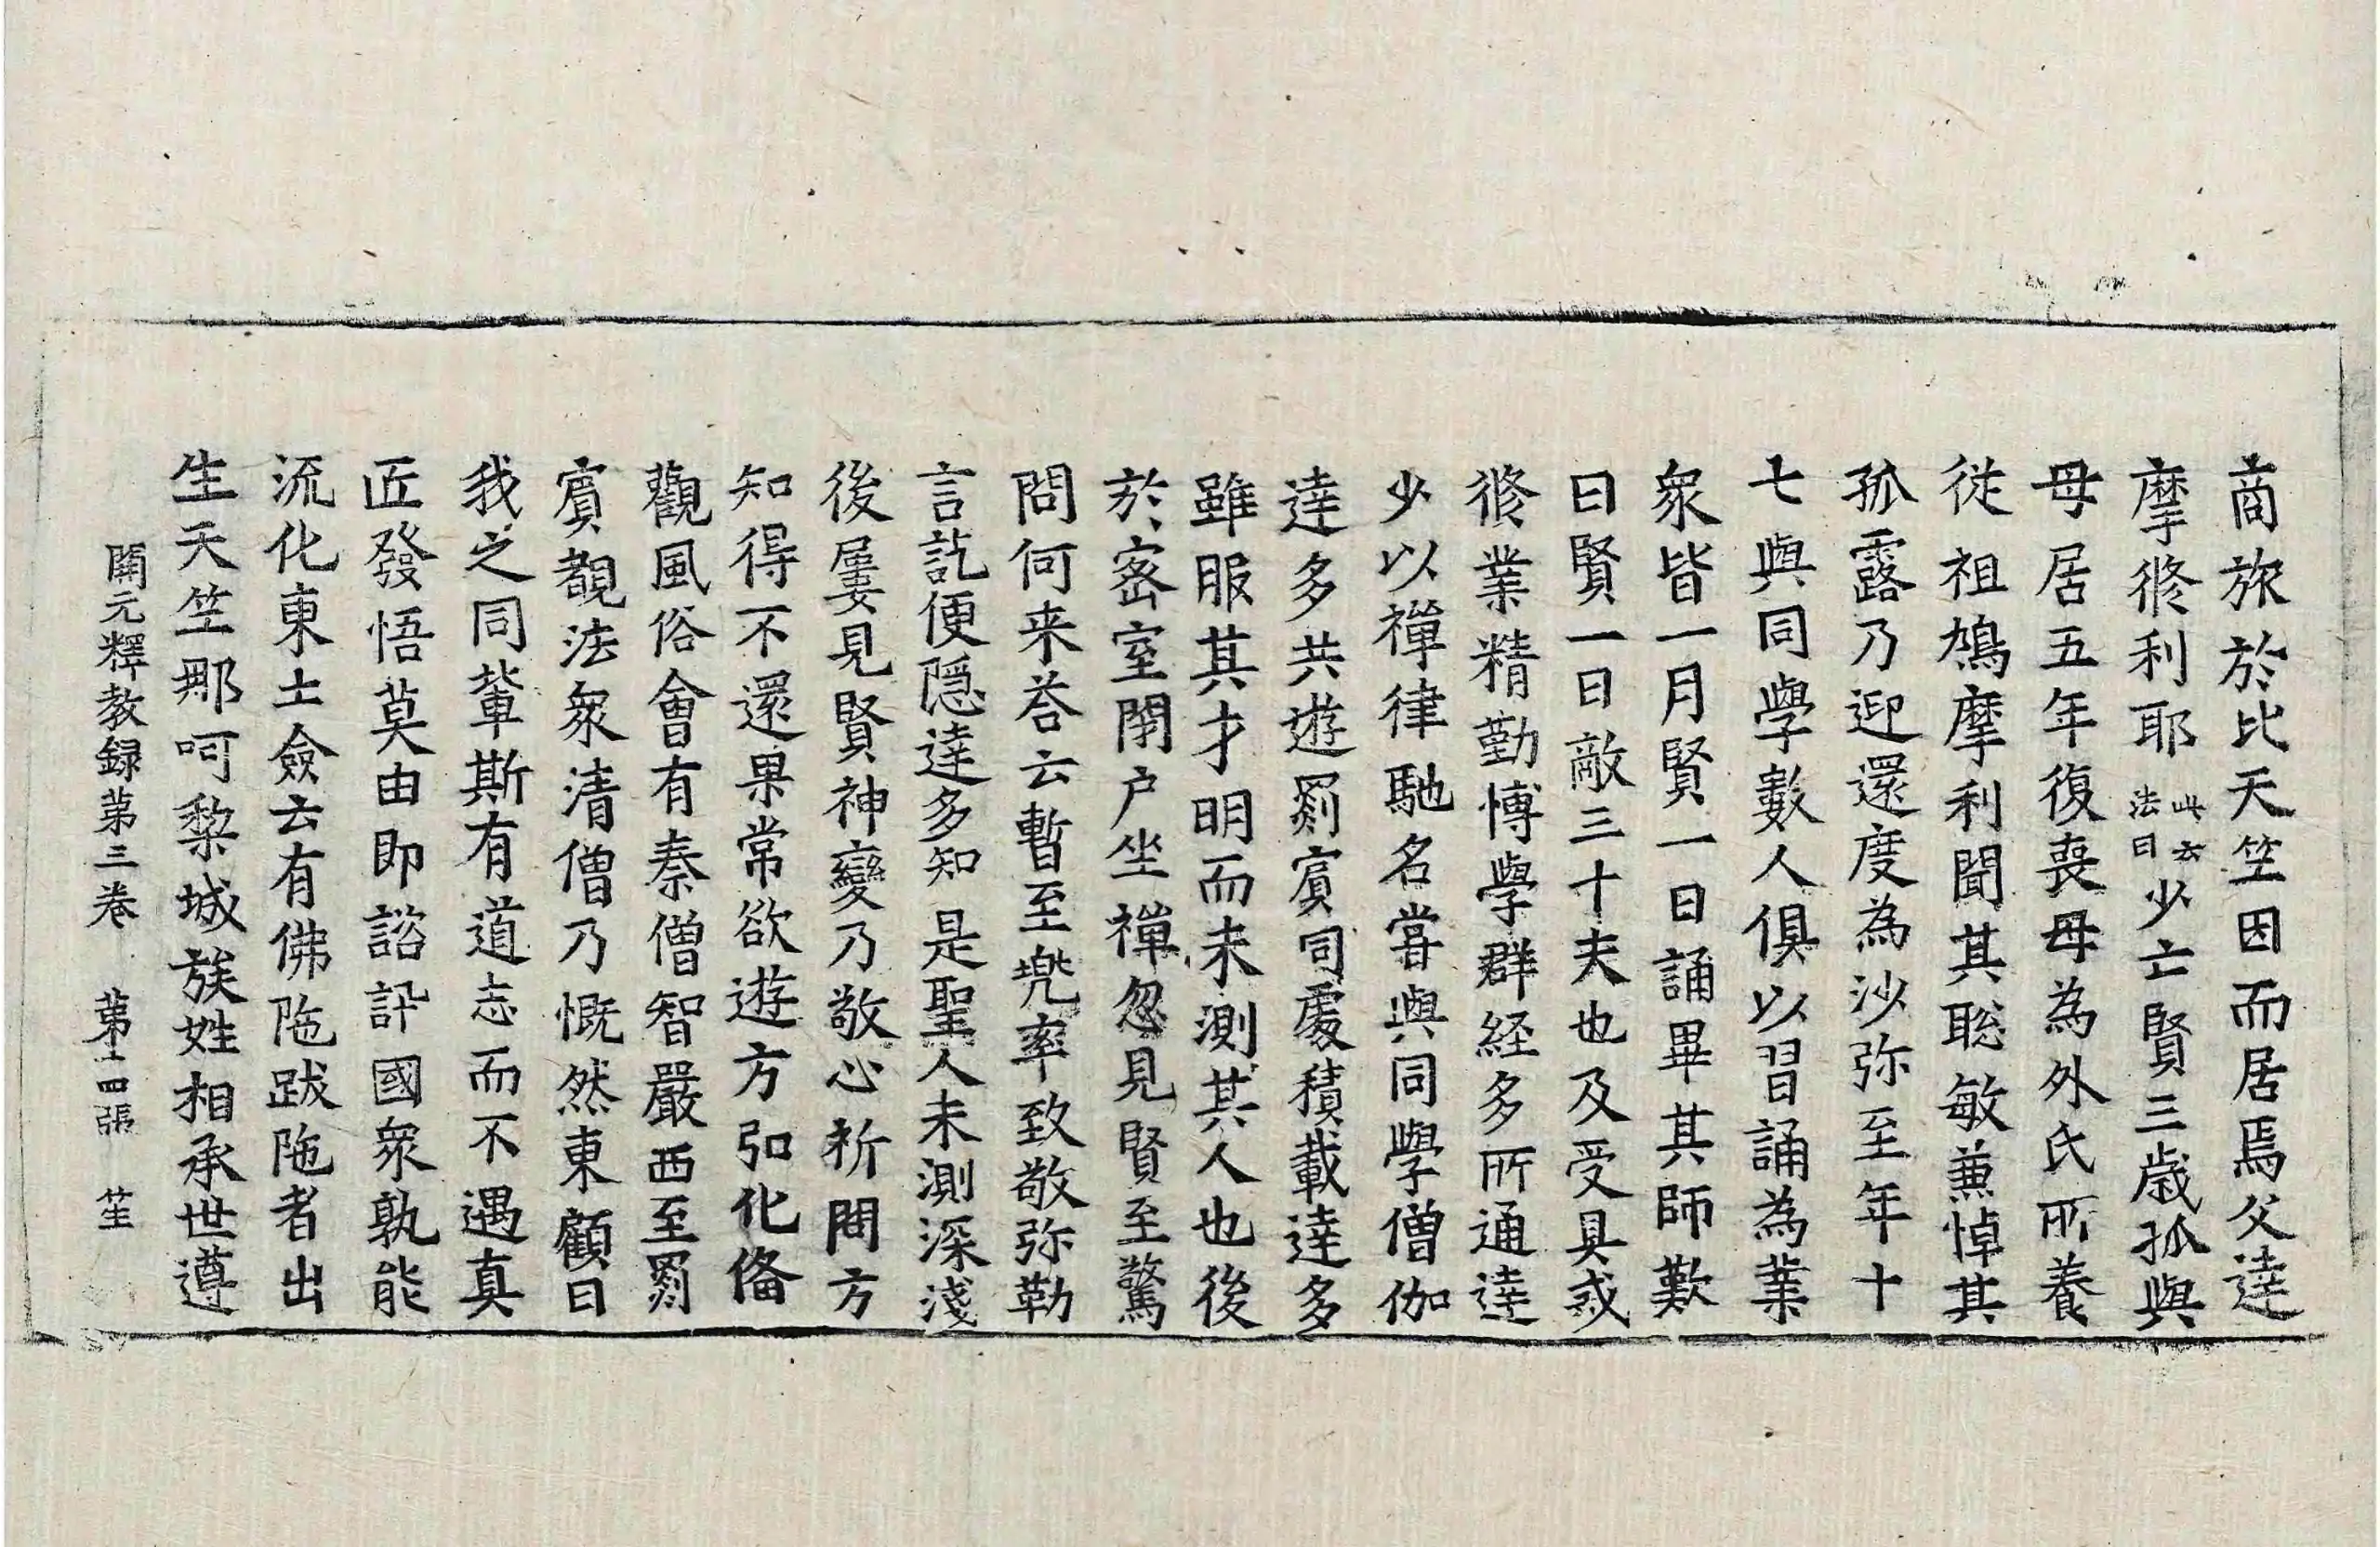 商旅於北天竺因而居焉父達
摩脩利耶此云法日少亡賢三歳孤與
母居五年復喪母為外氏所養
従祖鳩摩利聞其聡敏兼悼其
孤露乃迎還度為沙弥至年十
七與同學數人俱以習誦為業
衆皆一月賢一日誦畢其師歎
曰賢一日敵三十夫也及受具或
脩業精勤博學群経多所通達
少以禪律馳名甞與同學僧伽
達多共遊罽賔同處積載達多
雖服其才明而未測其人也後
於宻室閇户坐禪忽見賢至驚
問何来荅云暫至兠率致敬弥勒
言訖便隠達多知是聖人未測深淺
後屢見賢神變乃敬心祈問方
知得不還果常欲遊方弘化俻
觀風俗會有秦僧智嚴西至罽
賔覩法衆清僧乃慨然東顧曰
我之同軰斯有道志而不遇真
匠發悟莫由即諮訊國衆孰能
流化東土僉云有佛陁跋陁者出
生天竺那呵棃城族姓相承世遵
開元釋教録第三卷　第十四張　笙